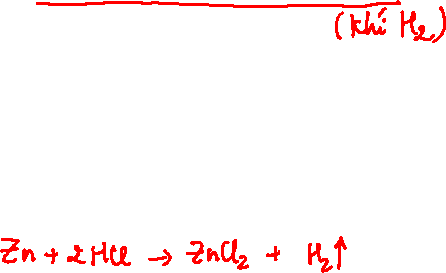 (khí H₂)
Zn + 2HCl → ZnCl₂ + H₂↑